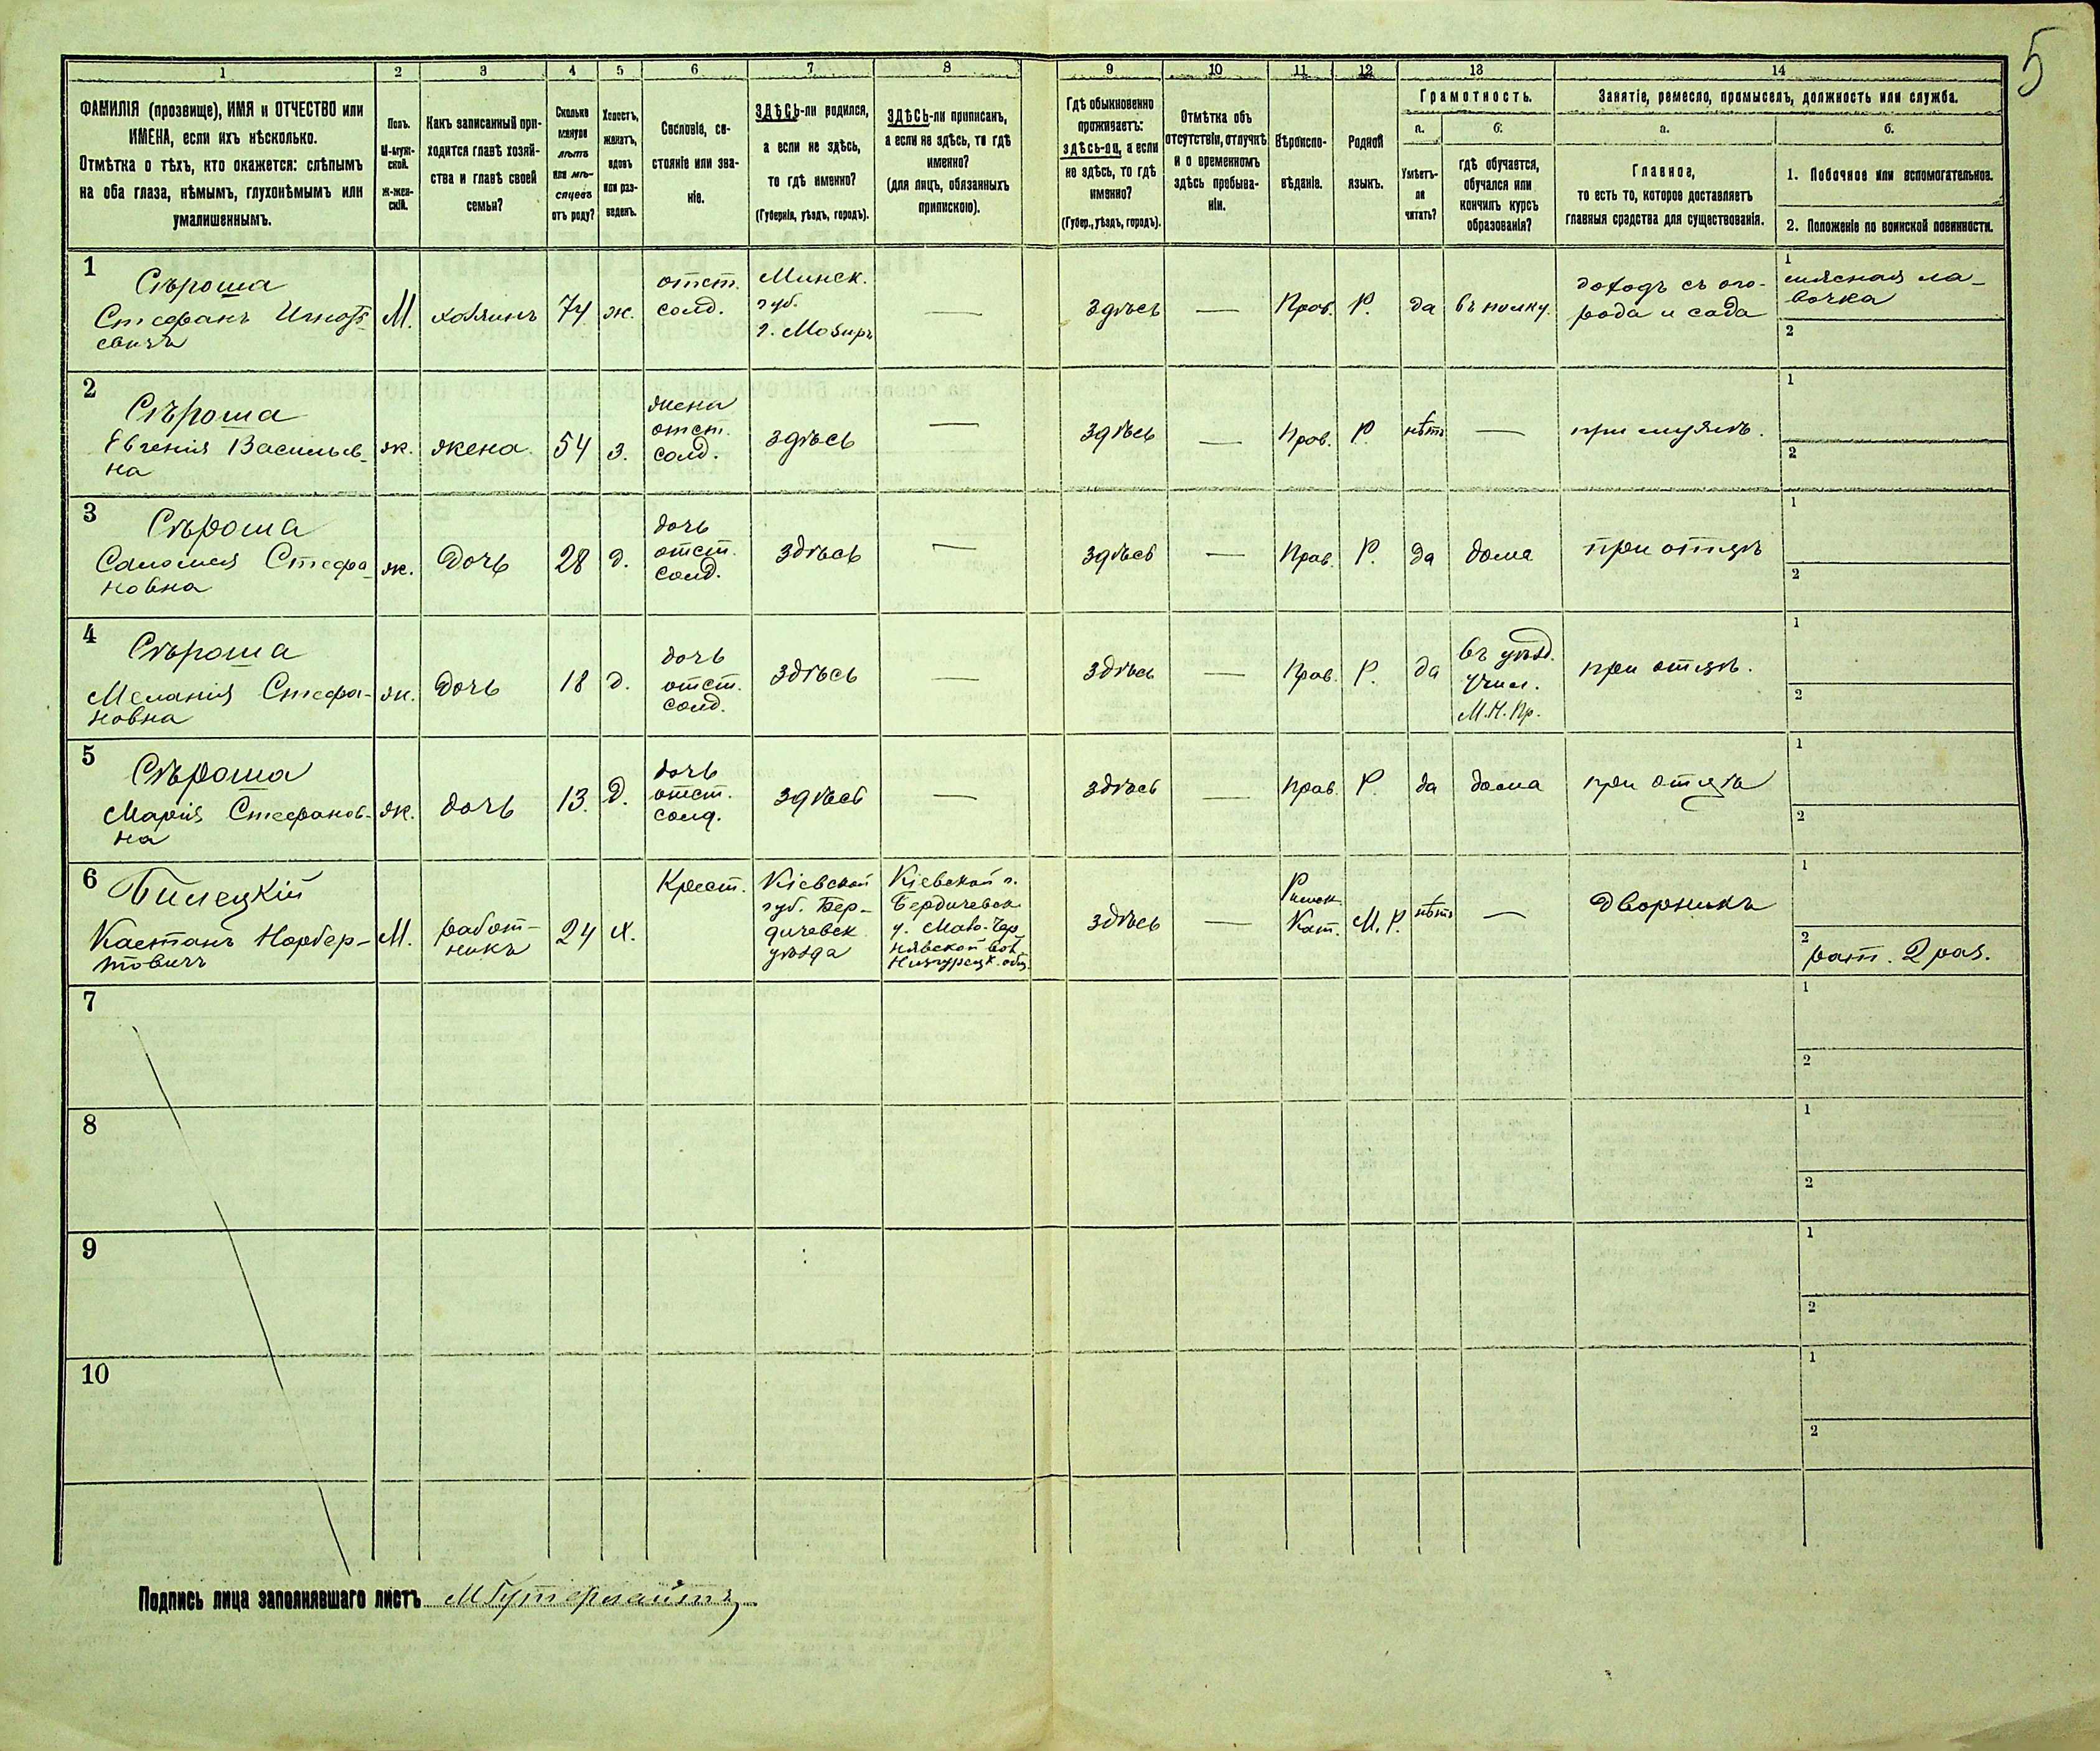 5
1 2 3 4 5 6 7 8 9 10 11 12 13 14
ФАМИЛІЯ (прозвище), ИМЯ и ОТЧЕСТВО или
ИМЕНА, если ихъ нѣсколько.
Отмѣтка о тѣхъ, кто окажется: слѣпымъ
на оба глаза, нѣмымъ, глухонѣмымъ или
умалишеннымъ.
Полъ.
М-муж-
ской.
Ж-жен-
скій.
Какъ записанный при-
ходится главѣ хозяй-
ства и главѣ своей
семьи?
Сколько
минуло
лѣтъ
или мѣ-
сяцевъ
отъ роду?
Холостъ,
женатъ,
вдовъ
или раз-
веденъ.
Сословіе, со-
стояніе или зва-
ніе.
ЗДѢСЬ-ли родился,
а если не здѣсь,
то гдѣ именно?
(Губернія, уѣздъ, городъ).
ЗДѢСЬ-ли приписанъ,
а если не здѣсь, то гдѣ
именно?
(для лицъ, обязанныхъ
припискою).
Гдѣ обыкновенно
проживаетъ:
здѣсь-ли, а если
не здѣсь, то гдѣ
именно?
(Губер., уѣздъ, городъ).
Отмѣтка объ
отсутствіи, отлучкѣ
и о временномъ
здѣсь пребыва-
ніи.
Вѣроиспо-
вѣданіе.
Родной
языкъ.
Грамотность.
а.
Умѣетъ-
ли
читать?
б.
гдѣ обучается,
обучался или
кончилъ курсъ
образованія?
Занятіе, ремесло, промыселъ, должность или служба.
а.
Главное,
то есть то, которое доставляетъ
главныя средства для существованія.
б.
1. Побочное или вспомогательное.
2. Положеніе по воинской повинности.
1
Сѣроша
Стефанъ
свичъ
М.
хозяинъ
74
ж.
отст.
солд.
Минск.
губ.
г. Мозырь
—
здѣсь
—
Прав.
Р.
да
въ полку.
доходъ съ ого-
рода и сада
1
мясная ла-
вочка
2
2
Сѣроша
Евгенія Васильев-
на
ж.
жена
54
з.
жена
отст.
солд.
здѣсь
—
здѣсь
—
Прав.
Р.
нѣтъ
—
при мужѣ.
1
2
3
Сѣроша
Саломея Стефа-
новна
ж.
дочь
28
д.
дочь
отст.
солд.
здѣсь
—
здѣсь
—
Прав.
Р.
да
дома
при отцѣ
1
2
4
Сѣроша
Меланія Стефа-
новна
ж.
дочь
18
д.
дочь
отст.
солд.
здѣсь
—
здѣсь
—
Прав.
Р.
да
въ уѣзд.
Учил.
М.Н.Пр.
при отцѣ.
1
2
5
Сѣроша
Марія Стефанов-
на
ж.
дочь
13.
д.
дочь
отст.
солд.
здѣсь
—
здѣсь
—
Прав.
Р.
да
дома
при отцѣ
1
2
6
Билецкій
Каетанъ Норбер-
товичъ
М.
работ-
никъ
24
х.
Крест.
Кіевской
губ. Бер-
дичевск.
уѣзда
Кіевской г.
Бердичевск.
у. Мало-Чер-
нявской вол.
здѣсь
—
Римск.
Кат.
М.Р.
нѣтъ
—
дворникъ
1
2
рат. 2 раз.
7
1
2
8
1
2
9
1
2
10
1
2
Подпись лица заполнявшаго листъ